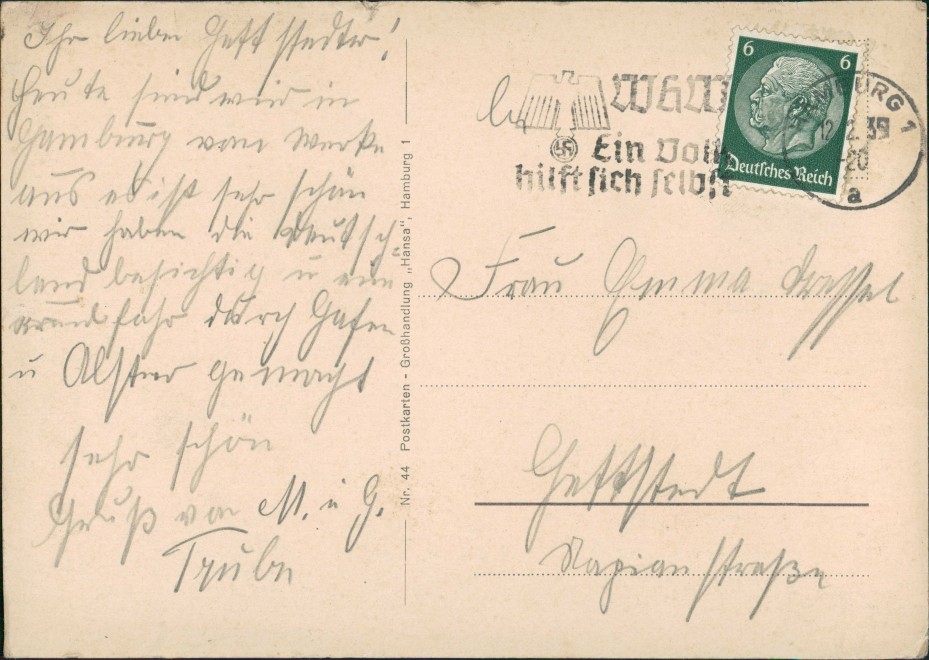 Ihr lieben Hettstedter!
Heute sind wir in
Hamburg vom Werke
aus es ist sehr schön
wir haben die Deutsch
land besichtig u eine
Rundfahr durch Hafen
u Alster gemacht
sehr schön
Gruß von M. u G.
Trube
Nr. 44 Postkarten - Großhandlung „Hansa", Hamburg 1
WHW
Ein Volk
hilft sich selbst
6 6
Deutsches Reich
HAMBURG 1
12
39
20
a
Frau Emma Dressel
Hettstedt
straße